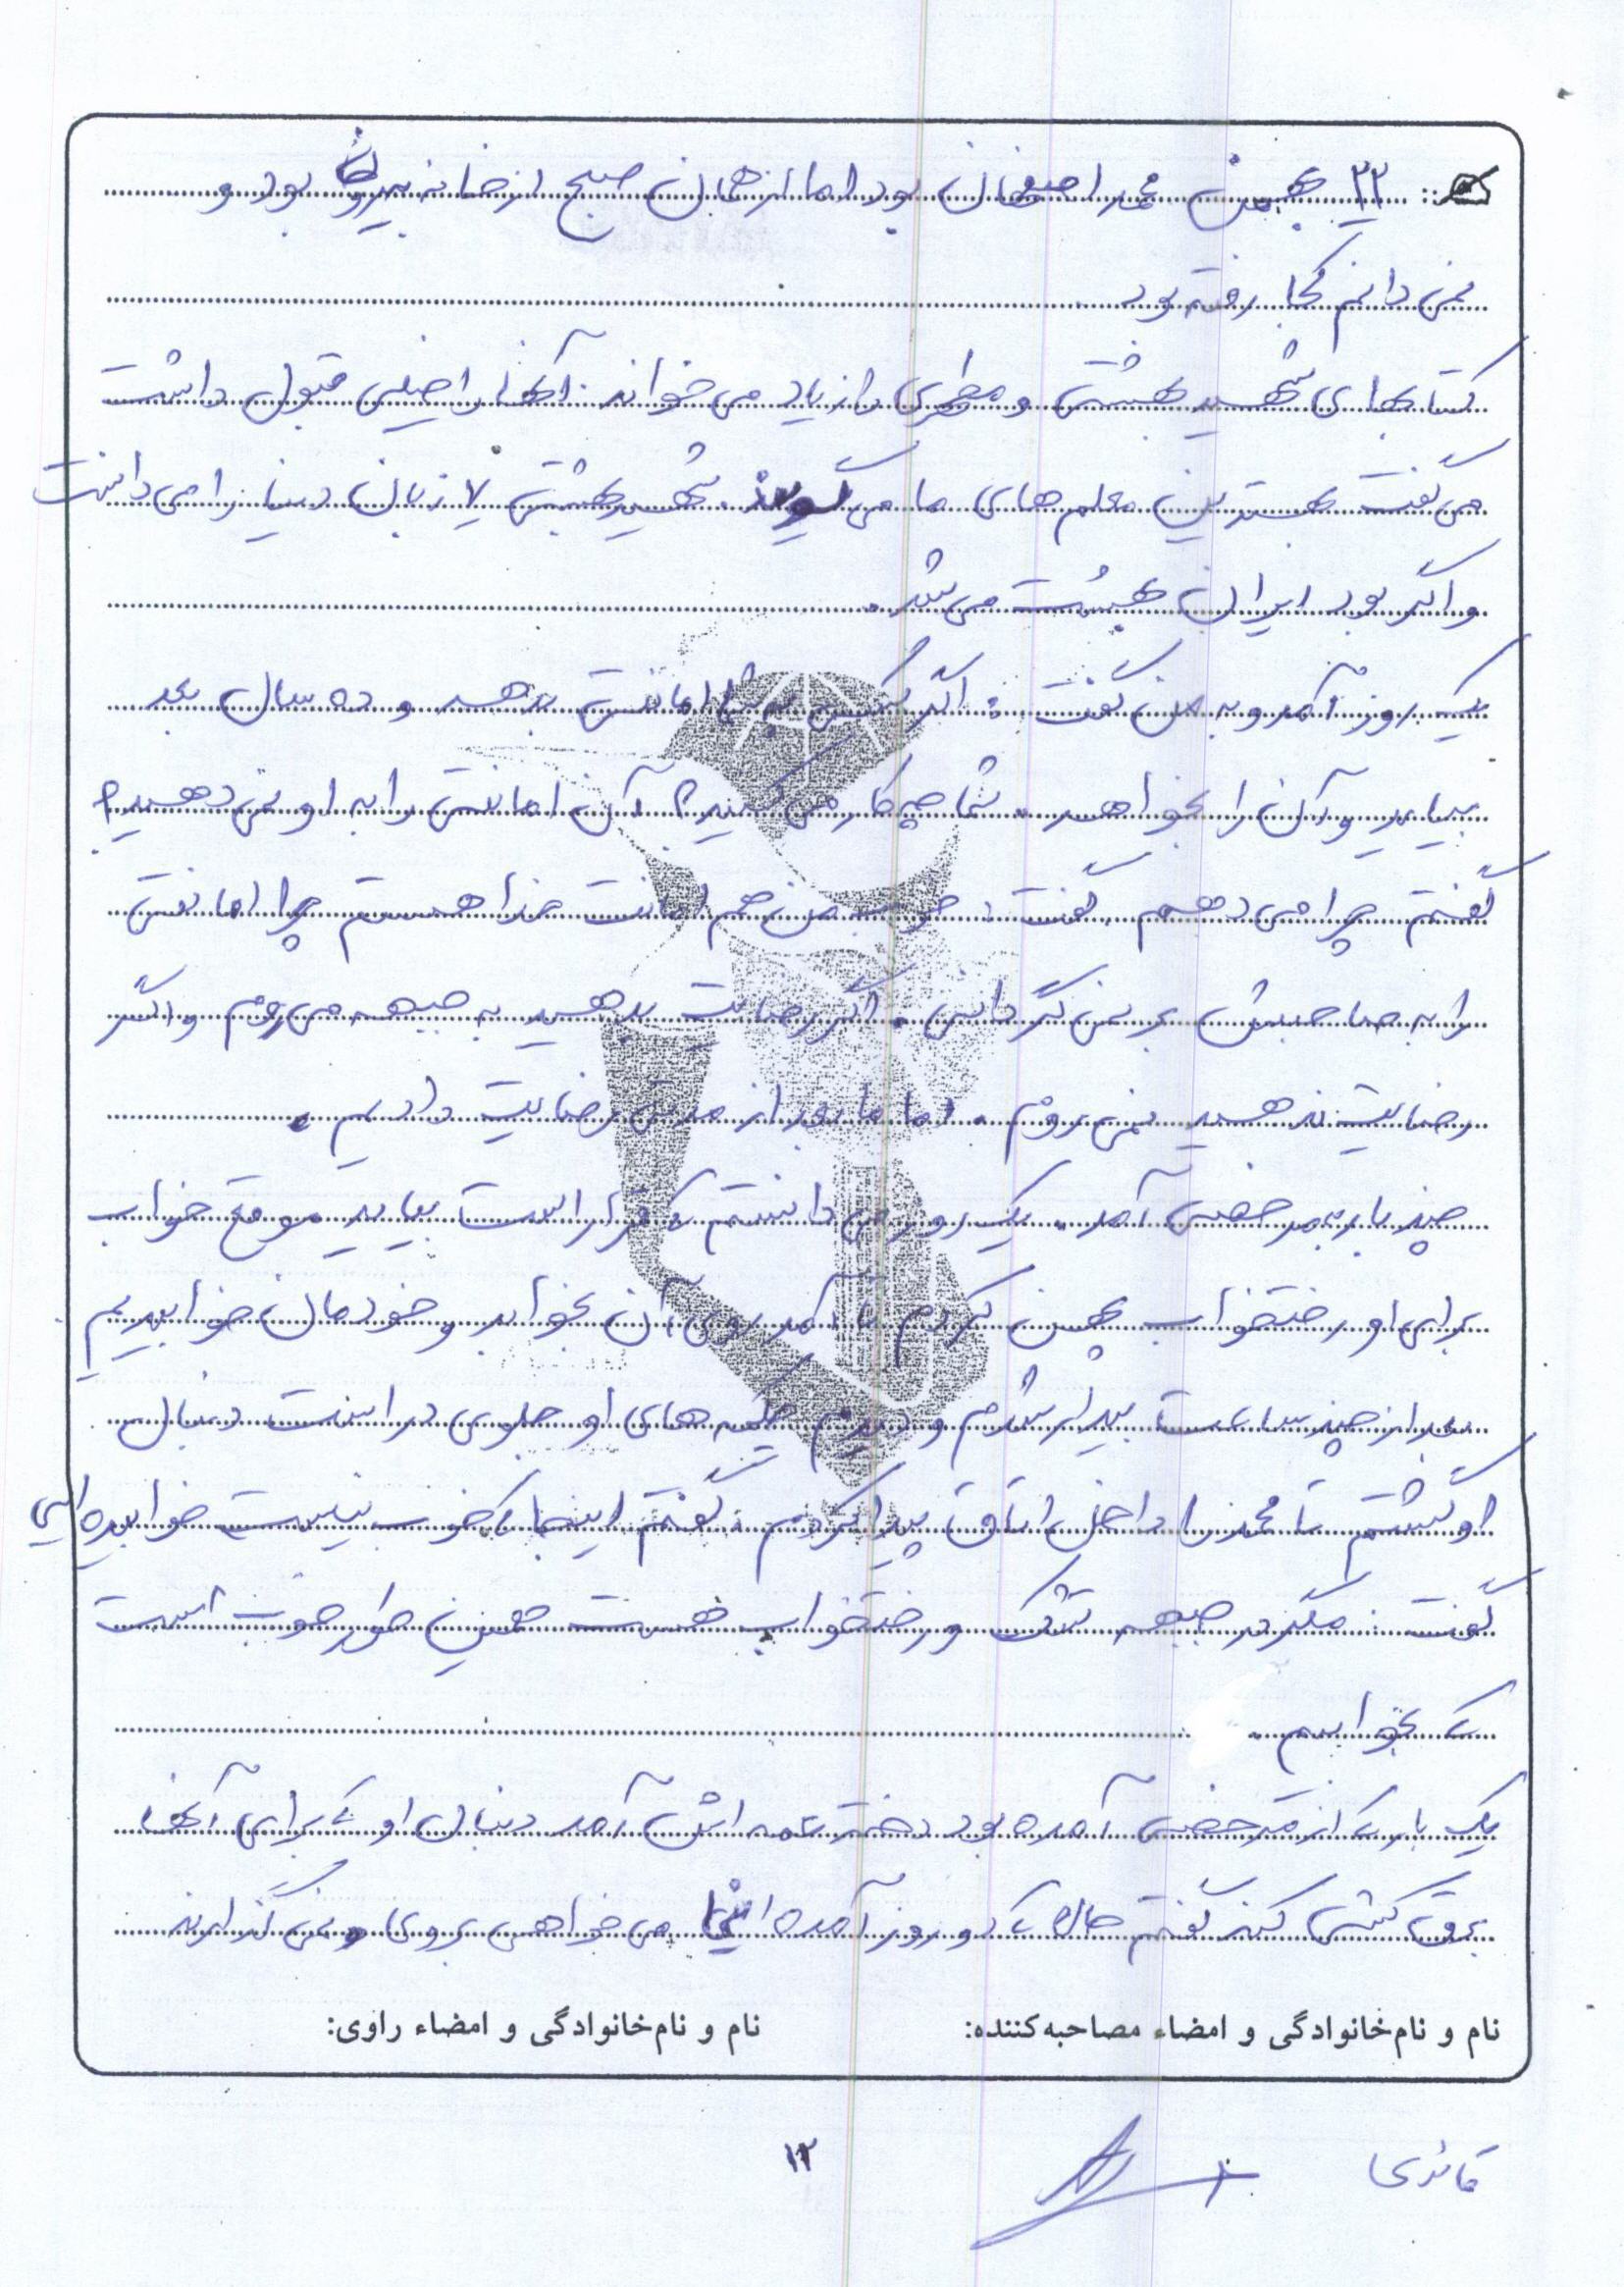 ۲۲ بهمن محمد اصفهان بود اما از همان صبح از خانه بیرون بود و
نمی دانم کجا رفته بود
کتابهای شهید بهشتی و مطهری را زیاد می خواند. آنها را خیلی قبول داشت
می گفت بهترین معلم های ما می گویند. شهید بهشتی ۷ زبان دنیا را می دانست
و اگر بود ایران بهشت می شد.
یک روز آمد و به من گفت: اگر کسی به شما امانتی بدهد و ده سال بعد
بیاید و آن را بخواهد. شما چه کار می کنید؟ آن امانتی را به او نمی دهید؟
گفتم چرا می دهم. گفت: خوب من هم امانت خدا هستم چرا امانتی
را به صاحبش بر نمی گردانی. اگر رضایت بدهید به جبهه می روم و اگر
رضایت ندهید نمی روم. اما ما بعد از مدتی رضایت دادیم.
چند بار به مرخصی آمد. یک روز می دانستم که قرار است بیاید موقع خواب
برای او رختخواب پهن کردم تا آمد روی آن بخوابد و خودمان خوابیدیم
بعد از چند ساعت بیدار شدم و دیدم چکمه های او جلوی در است دنبال
او گشتم تا محمد را داخل اتاق پیدا کردم. گفتم اینجا که خوب نیست خوابیده ایی
گفت: مگر در جبهه تشک و رختخواب هست همین طور خوب است
که بخوابیم.
یک بار که از مرخصی آمده بود دختر عمه اش آمد دنبال او که برای آنها
برق کشی کند گفتم حالا که دو روز آمده ای می خواهی بروی نمی گذارند
نام و نام‌خانوادگی و امضاء مصاحبه‌کننده: نام و نام‌خانوادگی و امضاء راوی:
۱۲